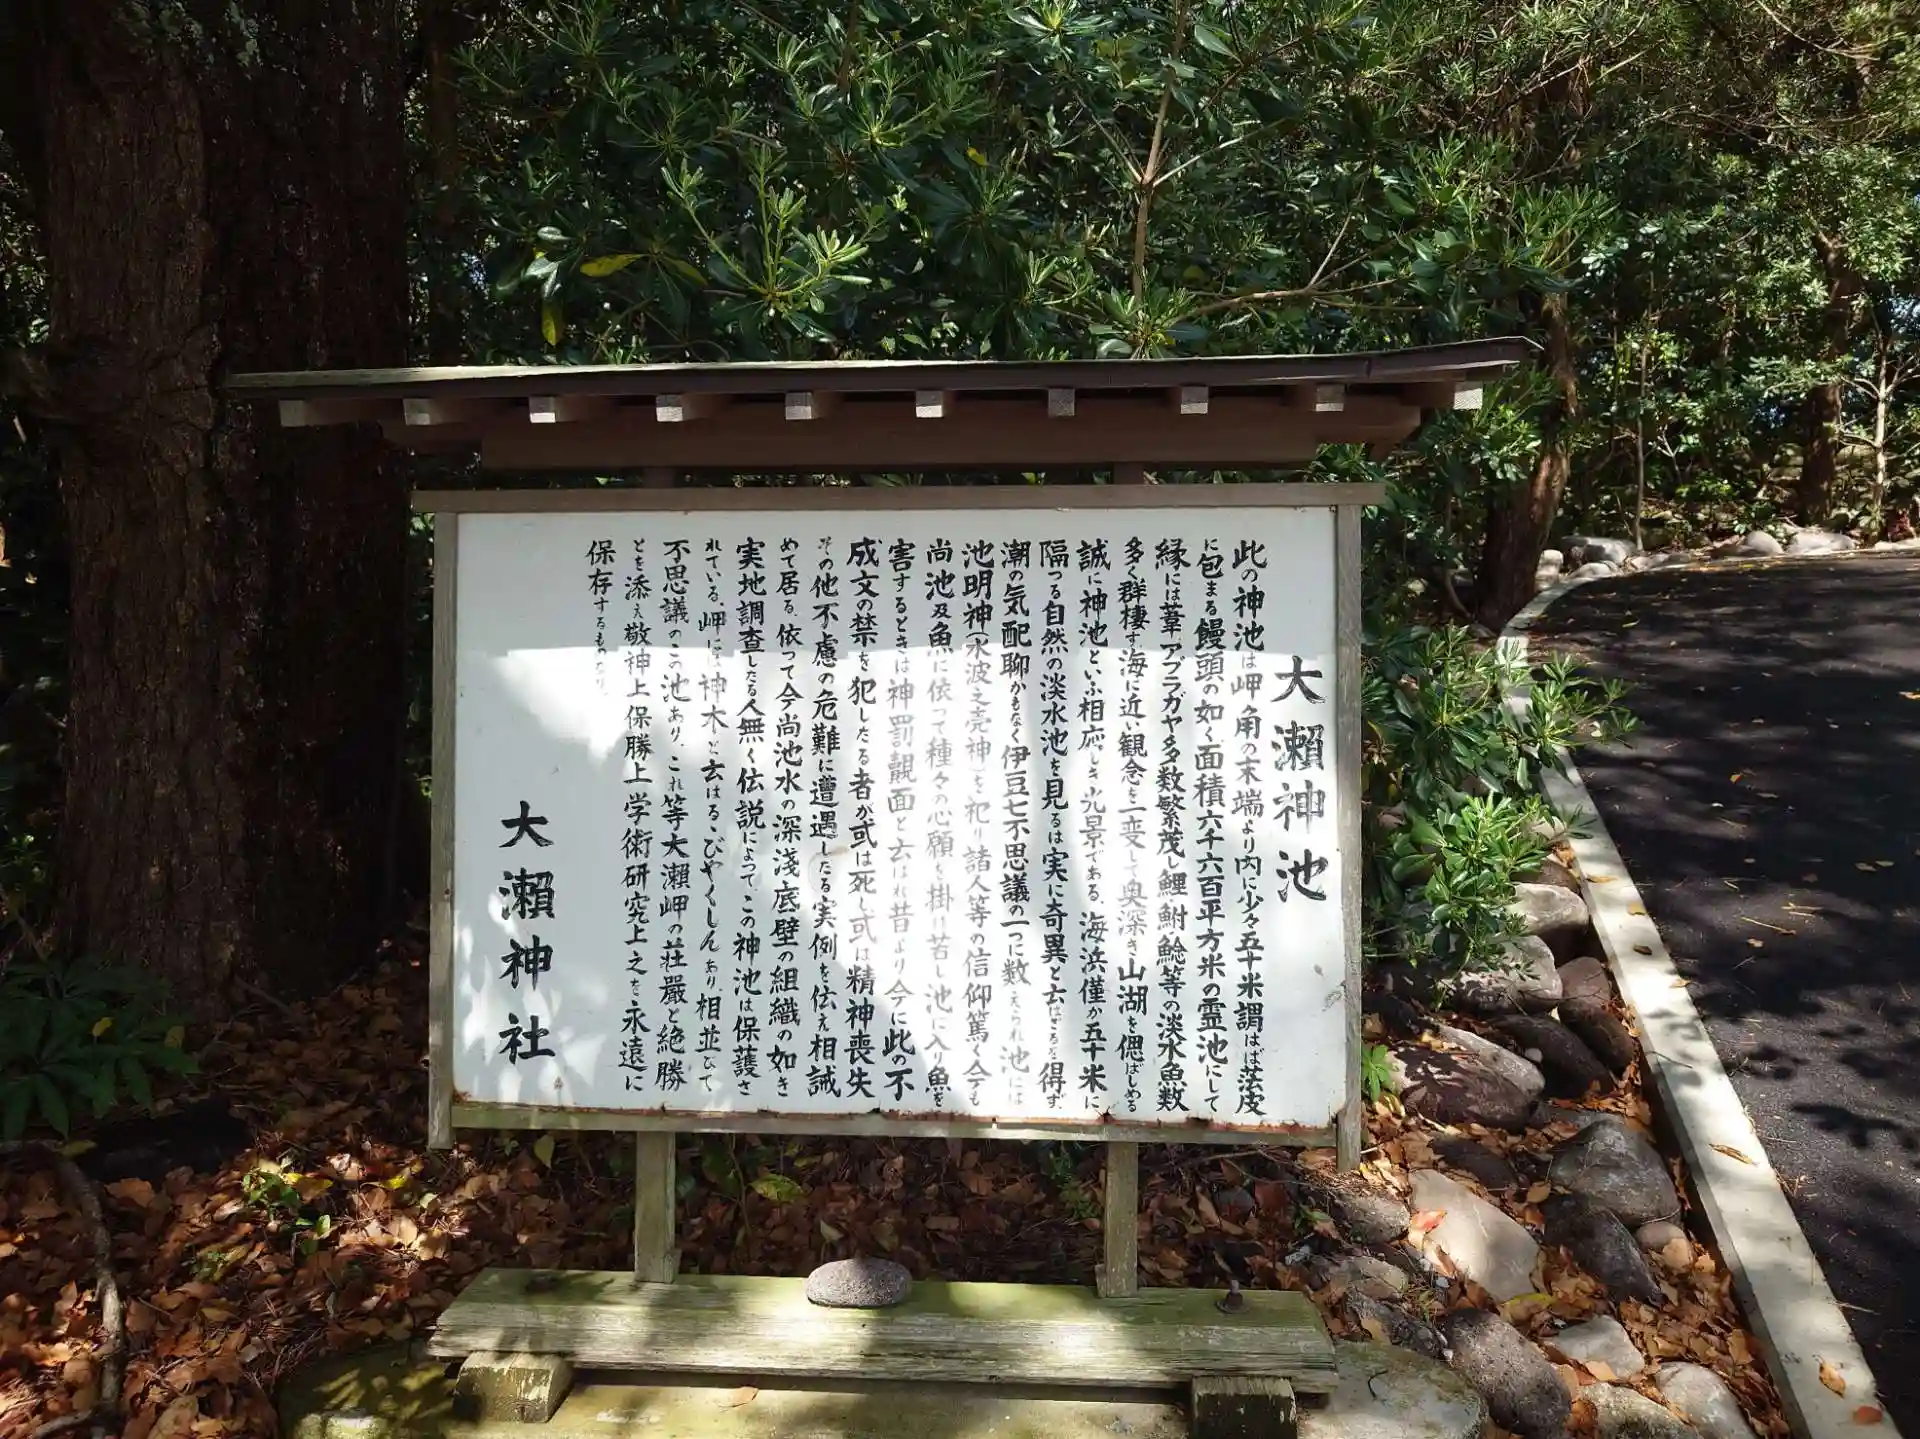 大瀬神池
此の神池は岬角の末端より内に少々五十米謂はば法皮
に包まる饅頭の如く面積六千六百平方米の霊池にして
縁には葦、アブラガヤ多数繁茂し鯉鮒鯰等の淡水魚数
多く群棲す海に近い観念を一変して奥深き山湖を偲ばしめる
誠に神池といふ相応しき光景である、海浜僅か五十米に
隔つる自然の淡水池を見るは実に奇異と云はざるを得ず、
潮の気配聊かもなく伊豆七不思議の一つに数えられ池には
池明神(水波之売神)を祀り諸人等の信仰篤く今も
尚池及魚に依って種々の心願を掛け若し池に入り魚を
害するときは神罰覿面と云はれ昔より今に此の不
成文の禁を犯したる者が或は死し或は精神喪失
その他不慮の危難に遭遇したる実例を伝え相誡
めて居る、依って今尚池水の深淺底壁の組織の如き
実地調査したる人無く伝説によって、この神池は保護さ
れている、岬には神木と云はるゝびやくしんあり、相並びて
不思議のこの池あり、これ等大瀬岬の荘嚴と絶勝
とを添え敬神上保勝上学術研究上之を永遠に
保存するものなり。
大瀬神社